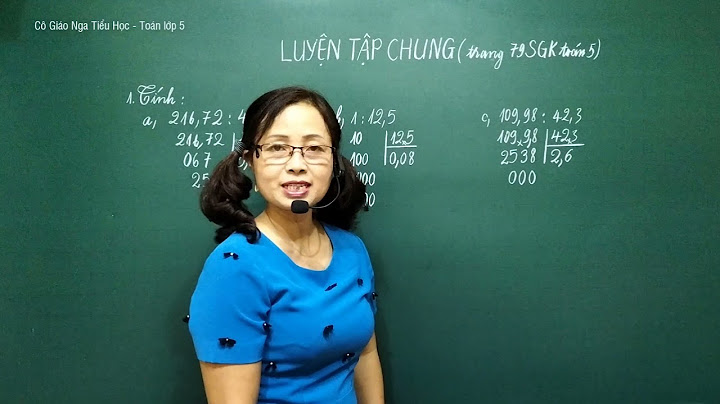 Cô Giáo Nga Tiểu Học - Toán lớp 5
LUYỆN TẬP CHUNG (trang 79 SGK toán 5)
1. Tính:
a, 216,72 : 4
216,72
067
25
1 : 12,5
10 12,5
100 0,08
c, 109,98 : 42,3
109,98 42,3
2538 2,6
000